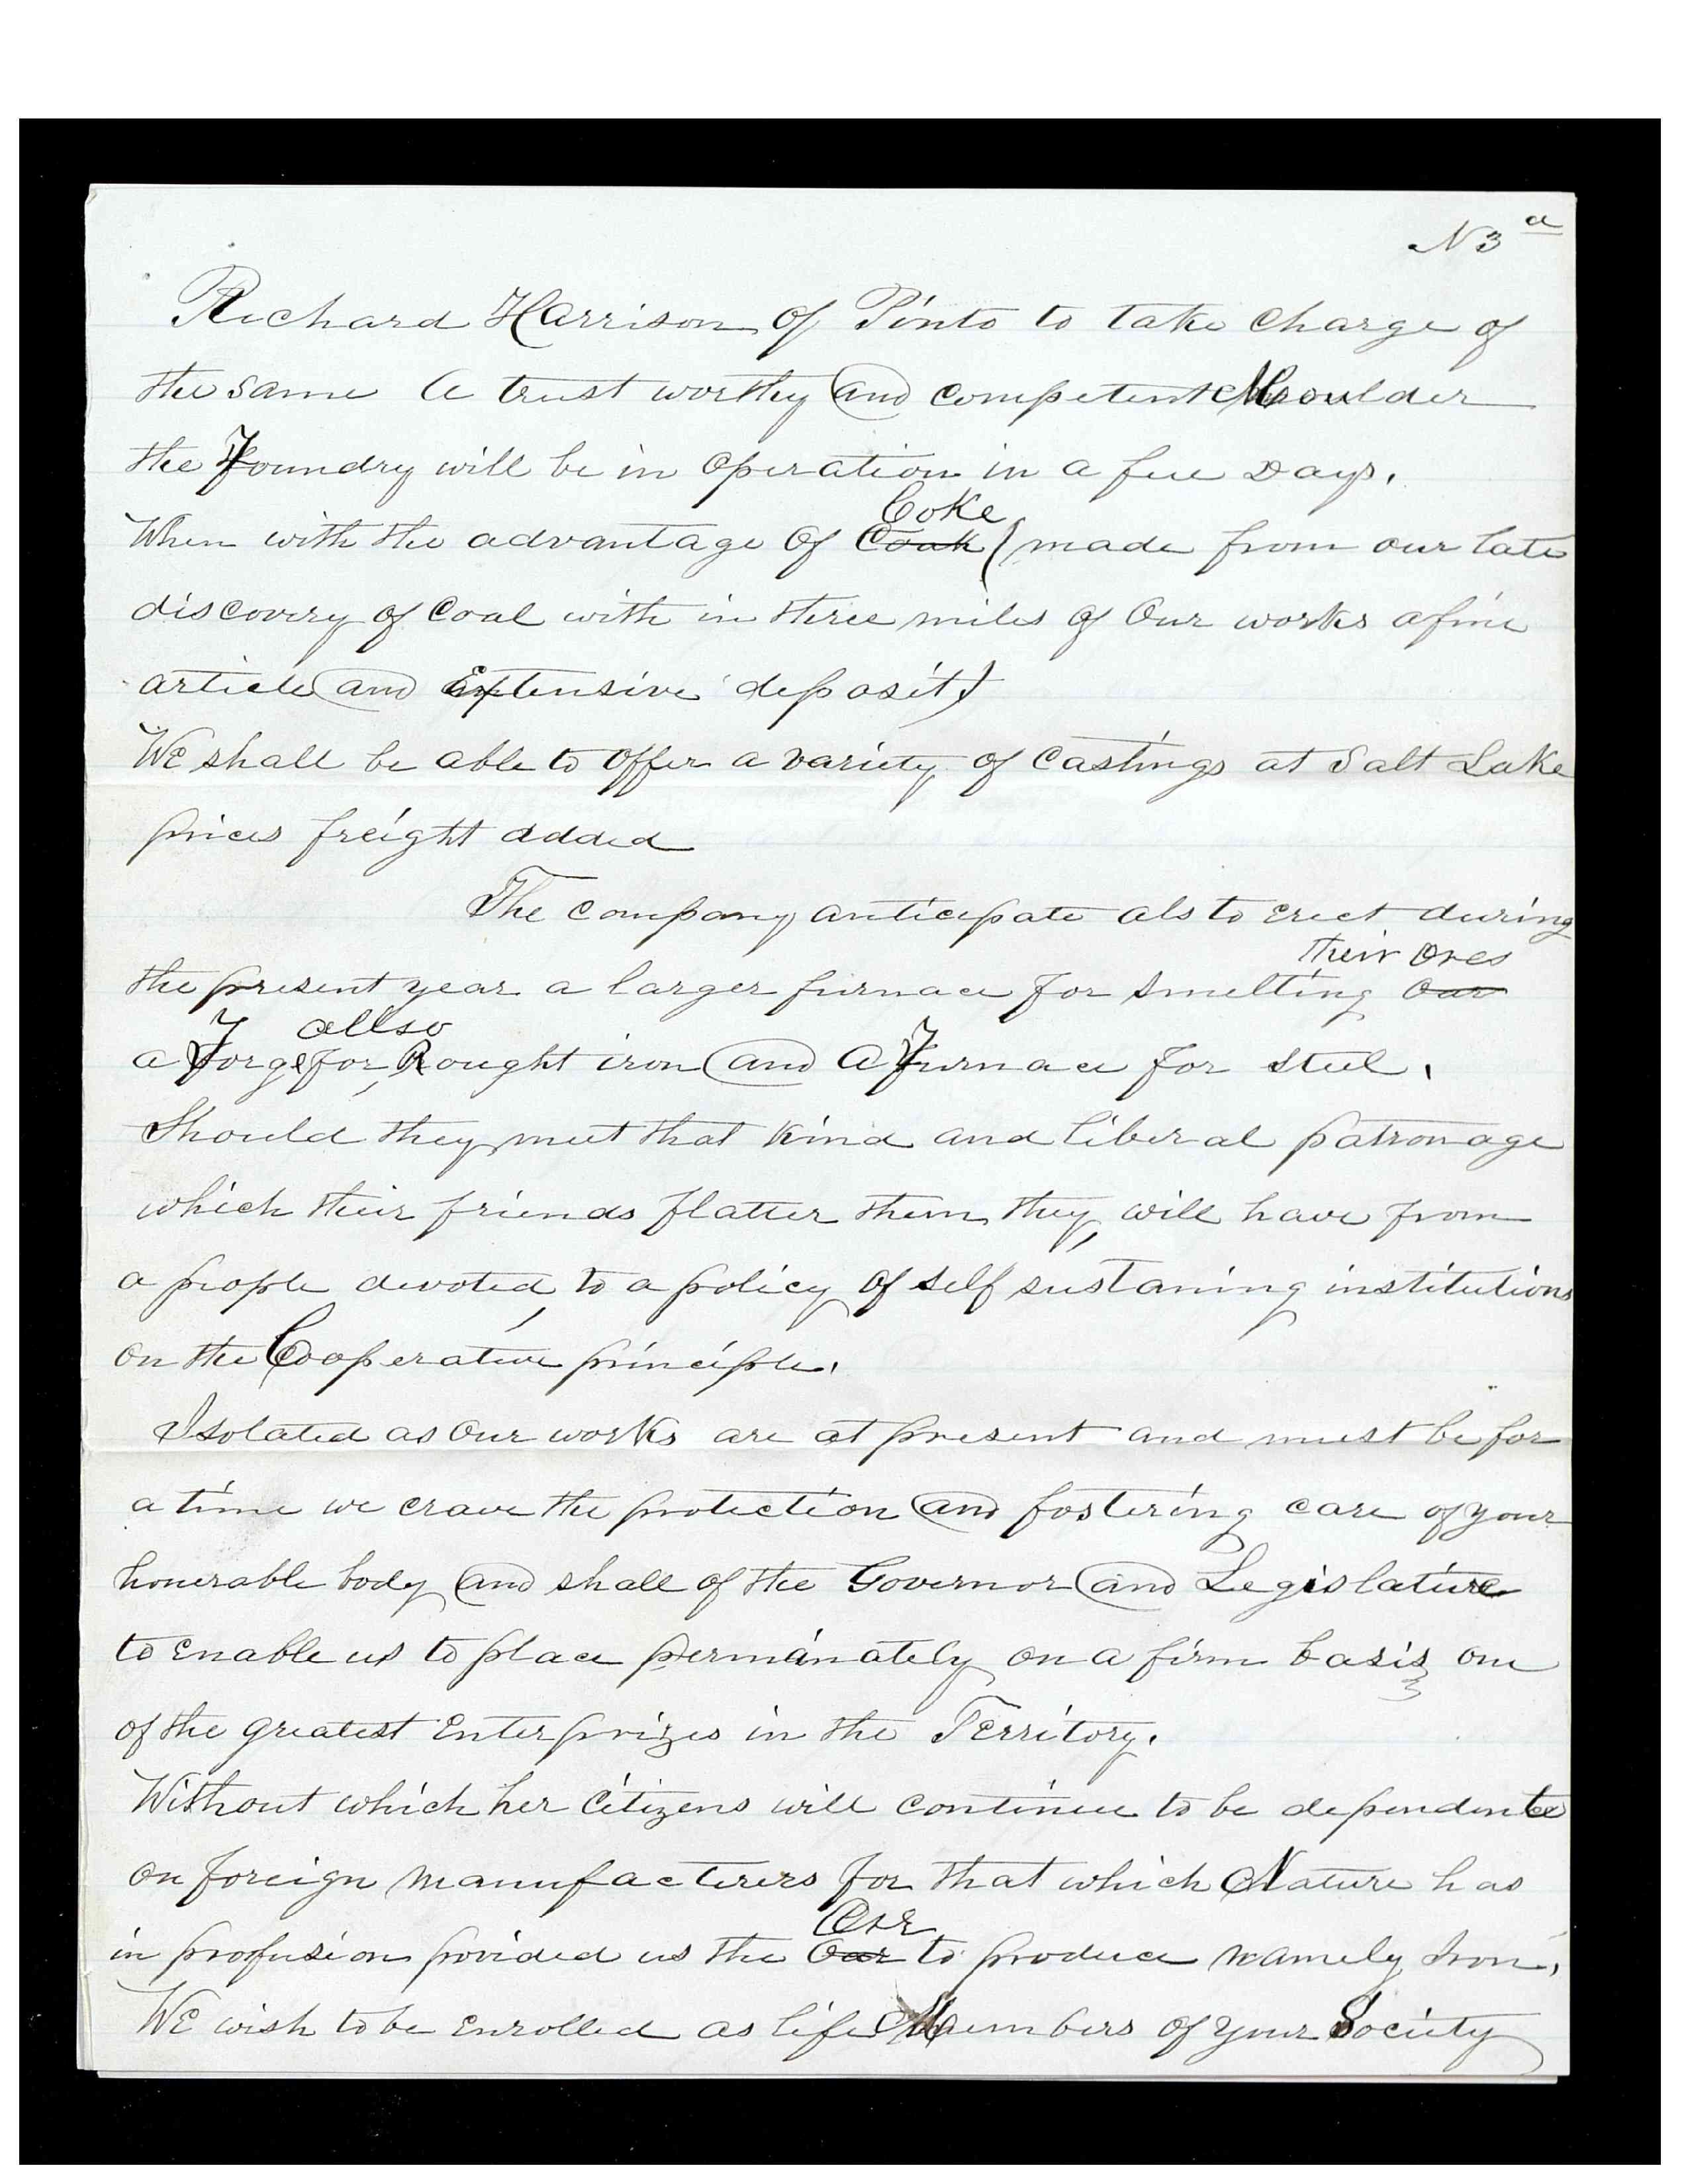 N 3 a
Richard Harrison of Pinto to take charge of
the same A trust worthy and competent Moulder
the Foundry will be in operation in a few Days.
Coke
When with the advantage of Coak (made from our late
discovery of Coal with in three miles of Our works a fine
article and Extensive deposit)
We shall be able to offer a variety of Castings at Salt Lake
prices freight added
The company anticipate als to erect during
their ores
the present year a larger furnace for smelting Oar
allso
a Forge for, Rought iron and A Furnace for steel.
Should they meet that kind and liberal patronage
which their friends flatter them they, will have from
a people devoted, to a policy of self sustaning institutions
on the Cooperative principle.
Isolated as Our works are at present and must be for
a time we crave the protection and fostering care of your
honerable body and shall of the Governor and Legislature
to enable us to place permanately on a firm basis one
of the greatest Enterprizes in the Territory.
Without which her Citizens will continue to be dependente
on foreign manufacterers for that which Nature has
Ore
in profusion povided us the Oar to produce namely Iron.
WE wish to be Enrolled as life Members of your Society